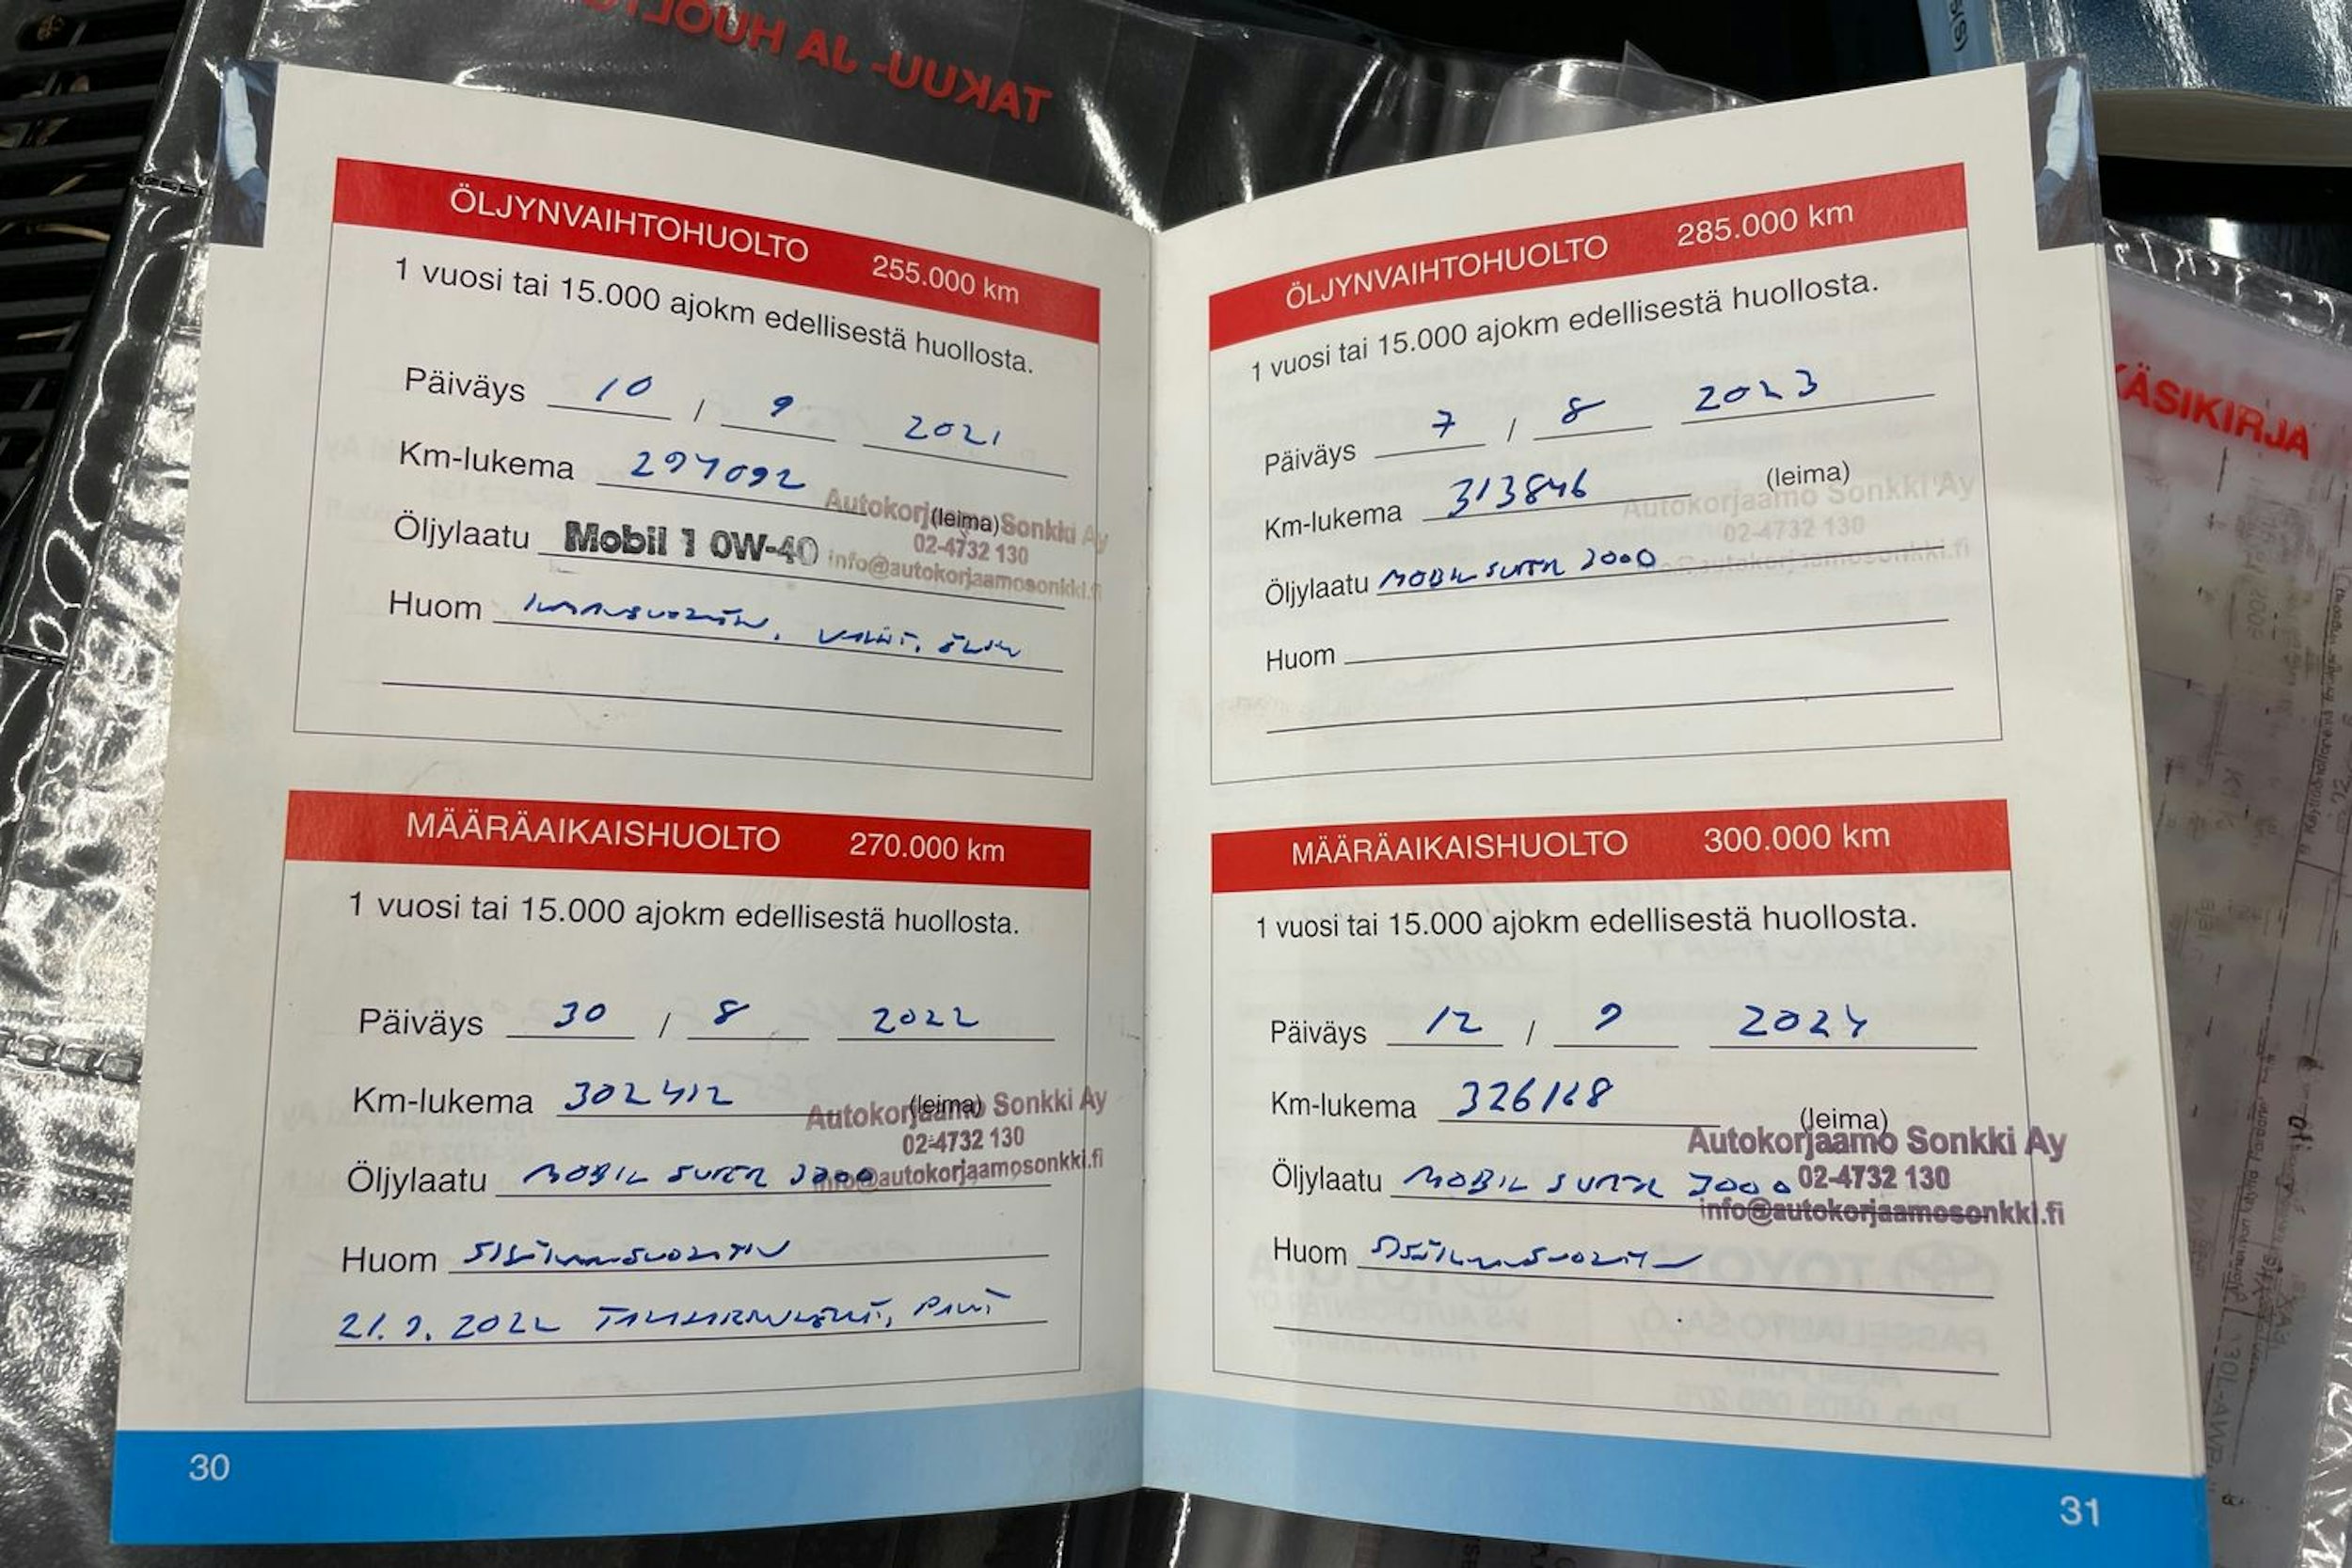 TAKUU- JA HUOLTO
ÖLJYNVAIHTOHUOLTO 255.000 km
1 vuosi tai 15.000 ajokm edellisestä huollosta.
Päiväys 10 / 9 2021
Km-lukema 297092
(leima)
Autokorjaamo Sonkki Ay
02-4732 130
info@autokorjaamosonkki.fi
Öljylaatu Mobil 1 0W-40
Huom
MÄÄRÄAIKAISHUOLTO 270.000 km
1 vuosi tai 15.000 ajokm edellisestä huollosta.
Päiväys 30 / 8 2022
Km-lukema 302412
(leima)
Autokorjaamo Sonkki Ay
02-4732 130
info@autokorjaamosonkki.fi
Öljylaatu MOBIL SUPER 3000
Huom SISÄILMANSUODATIN
21.9. 2022
30
ÖLJYNVAIHTOHUOLTO 285.000 km
1 vuosi tai 15.000 ajokm edellisestä huollosta.
Päiväys 7 / 8 2023
Km-lukema 313846
(leima)
Autokorjaamo Sonkki Ay
02-4732 130
info@autokorjaamosonkki.fi
Öljylaatu MOBIL SUPER 3000
Huom
MÄÄRÄAIKAISHUOLTO 300.000 km
1 vuosi tai 15.000 ajokm edellisestä huollosta.
Päiväys 12 / 9 2024
Km-lukema 326168
(leima)
Autokorjaamo Sonkki Ay
02-4732 130
info@autokorjaamosonkki.fi
Öljylaatu MOBIL SUPER 3000
Huom SISÄILMANSUODATIN
31
KÄSIKIRJA